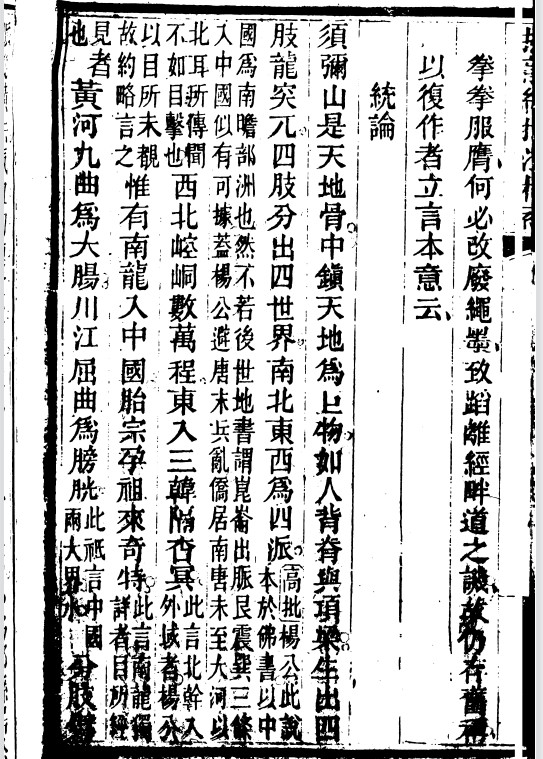 拳拳服膺何必改廢繩墨致蹈離經畔道之譏故仍存舊稱
以復作者立言本意云
統論
須彌山是天地骨中鎮天地為巨物如人背脊與項梁生出四
肢龍突兀四肢分出四世界南北東西為四派高批楊公此說
本於佛書以中
國為南瞻部洲也然不若後世地書謂崑崙出脈艮震巽三條
入中國似有可據蓋楊公避唐末兵亂僑居南唐未至大河以
北耳所傳聞
不如目擊也西北崆峒數萬程東入三韓隔杳冥此言北幹入
外域者楊公
以目所未覩
故約略言之惟有南龍入中國胎宗孕祖來奇特此言南龍獨
詳者目所經
見者
也黃河九曲為大腸川江屈曲為膀胱此祇言中國
兩大界水分肢